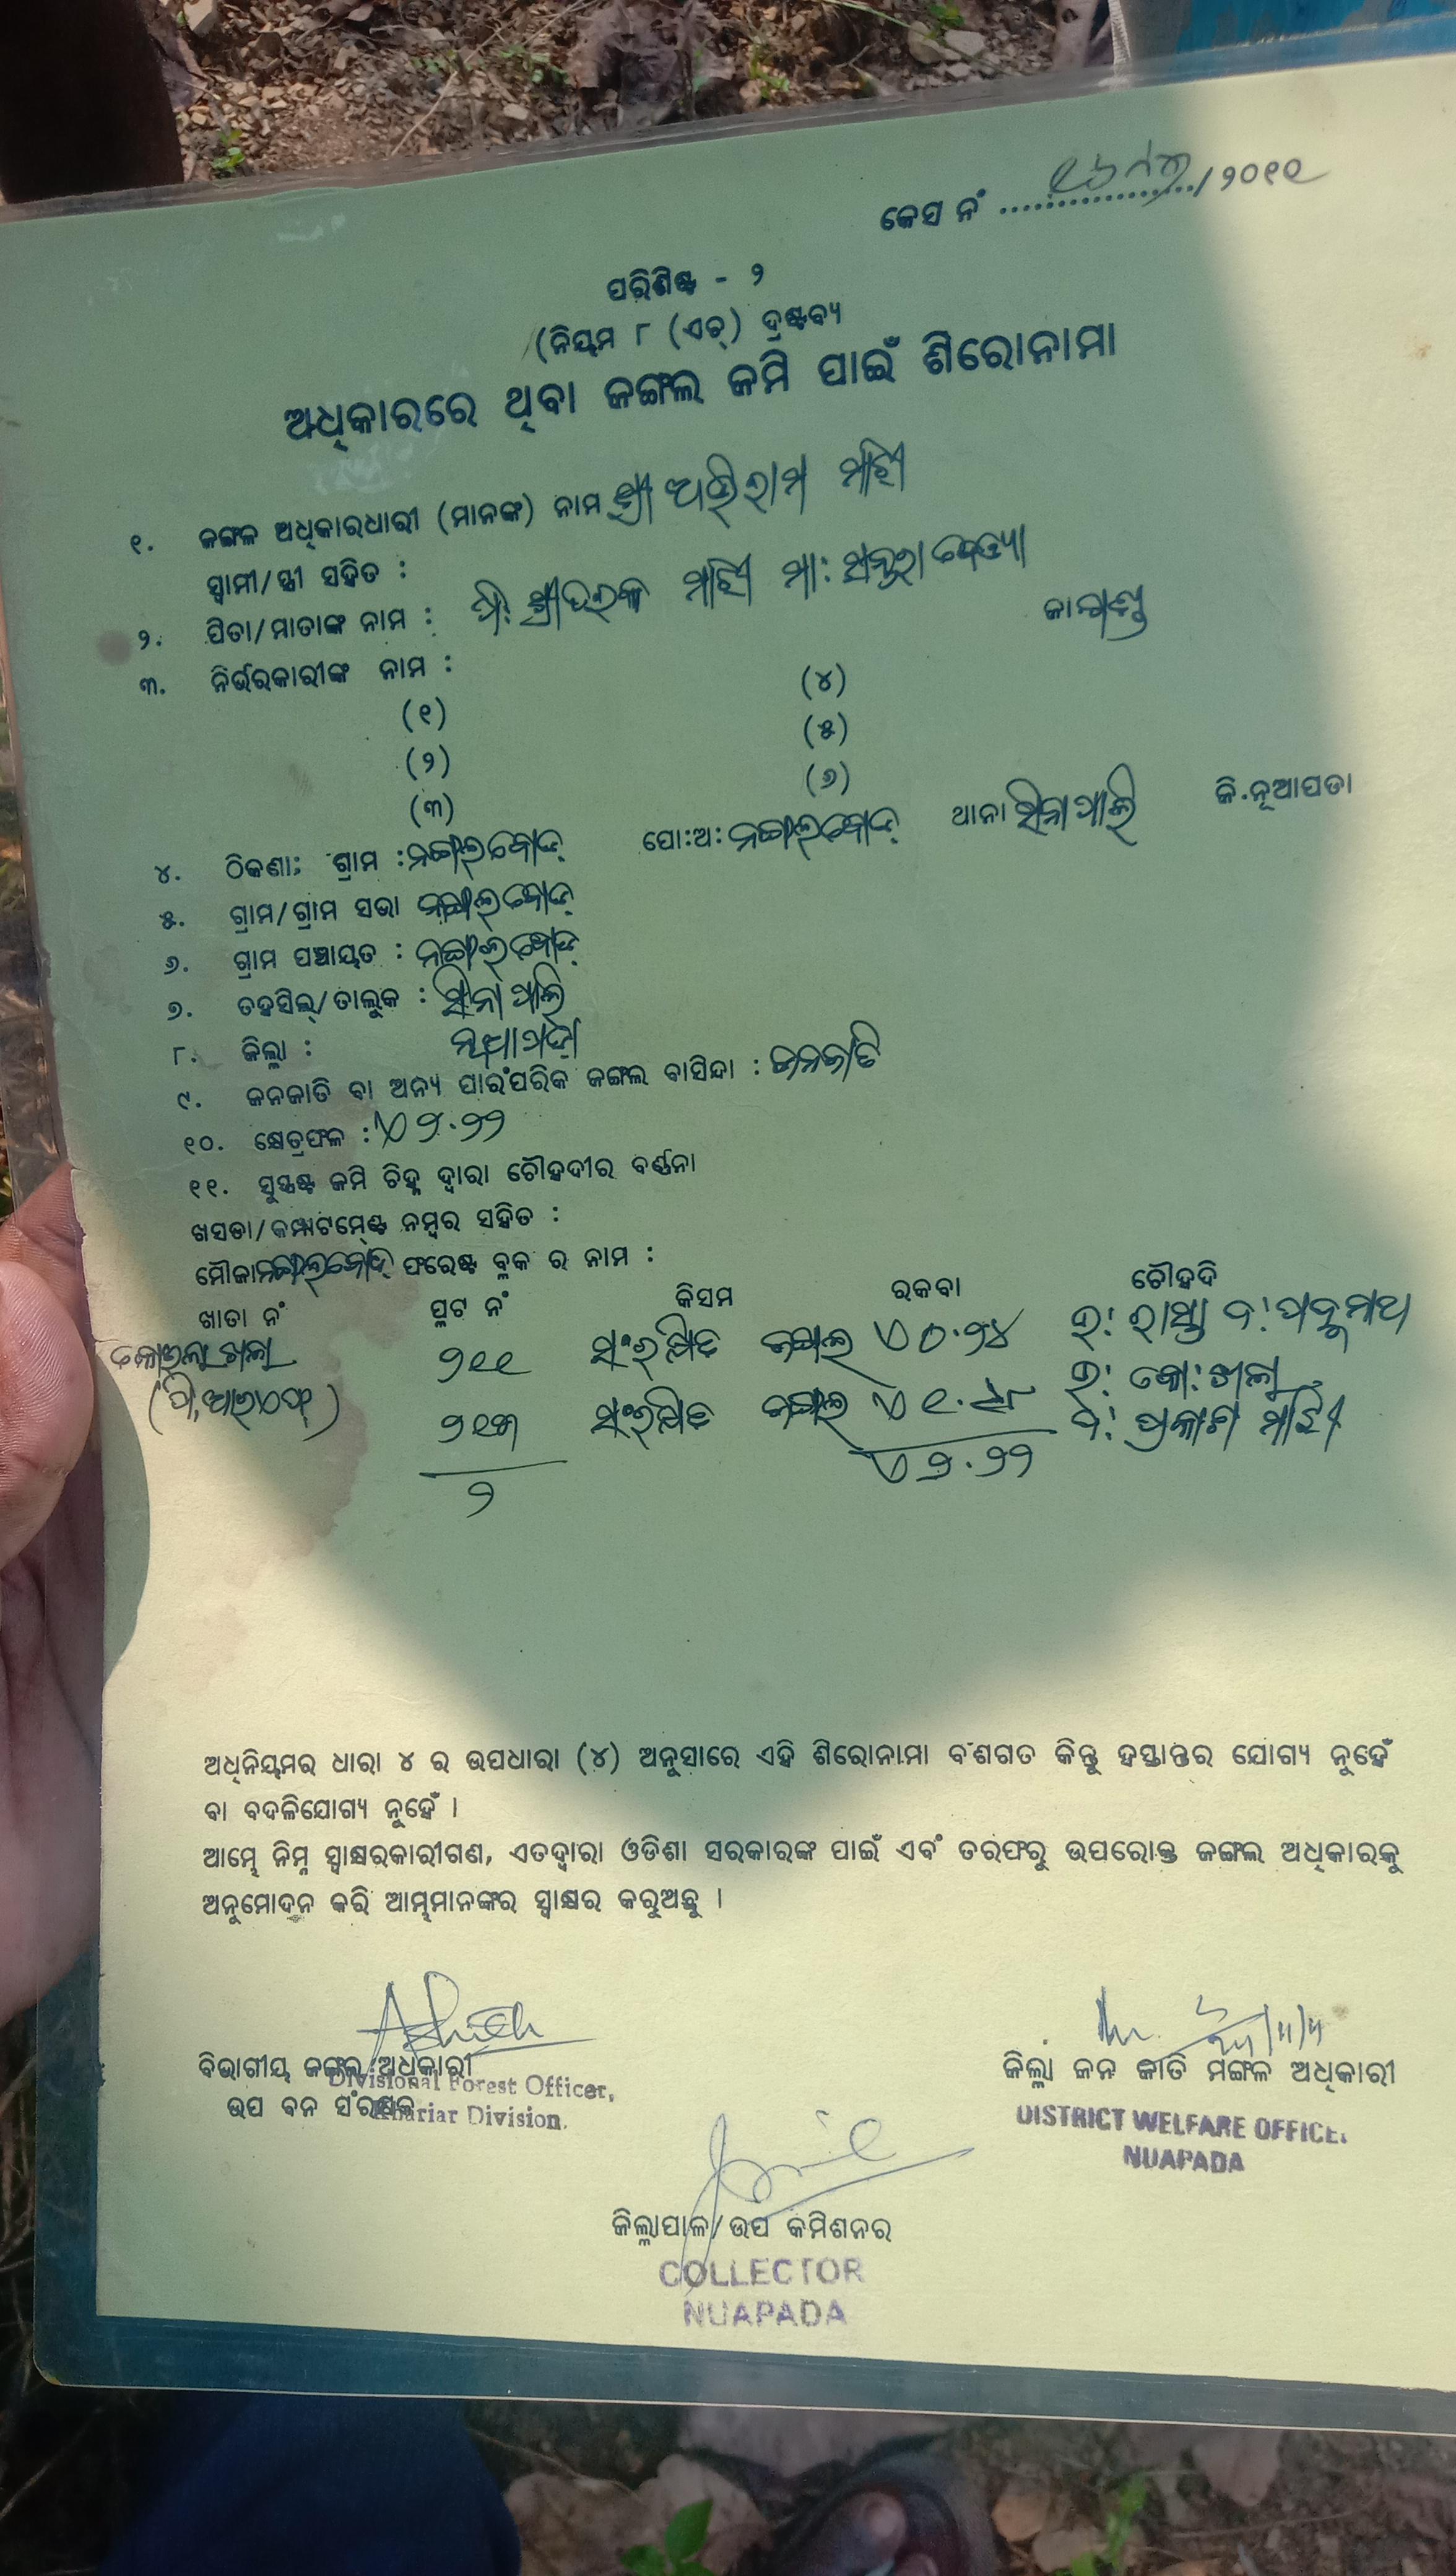 କେସ ନଂ ................../୨୦୧୧
ପରିଶିଷ୍ଟ - ୨
(ନିୟମ ୮ (ଏଚ୍) ଦ୍ରଷ୍ଟବ୍ୟ
ଅଧିକାରରେ ଥିବା ଜଙ୍ଗଲ ଜମି ପାଇଁ ଶିରୋନାମା
୧. ଜଙ୍ଗଲ ଅଧିକାରଧାରୀ (ମାନଙ୍କ) ନାମ ଶ୍ରୀ ଅଭିରାମ ମାଝୀ
ସ୍ୱାମୀ/ସ୍ତ୍ରୀ ସହିତ :
୨. ପିତା/ମାତାଙ୍କ ନାମ : ମାଝୀ ମା:
୩. ନିର୍ଭରକାରୀଙ୍କ ନାମ :
(୧) (୪)
(୨) (୫)
(୩) (୬)
୪. ଠିକଣା; ଗ୍ରାମ : ନଙ୍ଗଲବୋଡ୍ ପୋ:ଅ: ନଙ୍ଗଲବୋଡ୍ ଥାନା ସିନାପାଲି ଜି.ନୂଆପଡା
୫. ଗ୍ରାମ/ଗ୍ରାମ ସଭା ନଙ୍ଗଲବୋଡ୍
୬. ଗ୍ରାମ ପଞ୍ଚାୟତ : ନଙ୍ଗଲବୋଡ୍
୭. ତହସିଲ୍/ତାଲୁକ : ସିନାପାଲି
୮. ଜିଲ୍ଲା : ନୂଆପଡା
୯. ଜନଜାତି ବା ଅନ୍ୟ ପାରଂପରିକ ଜଙ୍ଗଲ ବାସିନ୍ଦା : ଜନଜାତି
୧୦. କ୍ଷେତ୍ରଫଳ : ୨.୨୨
୧୧. ସୁସ୍ପଷ୍ଟ ଜମି ଚିହ୍ନ ଦ୍ୱାରା ଚୌହଦୀର ବର୍ଣ୍ଣନା
ଖସଡା/କମ୍ପାଟମେଣ୍ଟ ନମ୍ବର ସହିତ :
ମୌଜା ନଙ୍ଗଲବୋଡ୍ ଫରେଷ୍ଟ ବ୍ଲକ ର ନାମ :
ଖାତା ନଂ ପ୍ଲଟ ନଂ କିସମ ରକବା ଚୌହଦି
୨୧୧ ସଂରକ୍ଷିତ ଜଙ୍ଗଲ ୦.୨୪ ଉ: ରାସ୍ତା ଦ:
୨୧୩ ସଂରକ୍ଷିତ ଜଙ୍ଗଲ ଉ:
ଦ: ପ୍ରକାଶ ମାଝୀ
୨ ୨.୨୨
ଅଧିନିୟମର ଧାରା ୪ ର ଉପଧାରା (୪) ଅନୁସାରେ ଏହି ଶିରୋନାମା ବଂଶଗତ କିନ୍ତୁ ହସ୍ତାନ୍ତର ଯୋଗ୍ୟ ନୁହେଁ
ବା ବଦଳିଯୋଗ୍ୟ ନୁହେଁ ।
ଆମ୍ଭେ ନିମ୍ନ ସ୍ୱାକ୍ଷରକାରୀଗଣ, ଏତଦ୍ୱାରା ଓଡିଶା ସରକାରଙ୍କ ପାଇଁ ଏବଂ ତରଫରୁ ଉପରୋକ୍ତ ଜଙ୍ଗଲ ଅଧିକାରକୁ
ଅନୁମୋଦନ କରି ଆମ୍ଭମାନଙ୍କର ସ୍ୱାକ୍ଷର କରୁଅଛୁ ।
ବିଭାଗୀୟ ଜଙ୍ଗଲ ଅଧିକାରୀ
Divisional Forest Officer,
ଉପ ବନ ସଂରକ୍ଷକ
Khariar Division.
ଜିଲ୍ଲା ଜନ ଜାତି ମଙ୍ଗଳ ଅଧିକାରୀ
DISTRICT WELFARE OFFICE
NUAPADA
ଜିଲ୍ଲାପାଳ/ଉପ କମିଶନର
COLLECTOR
NUAPADA